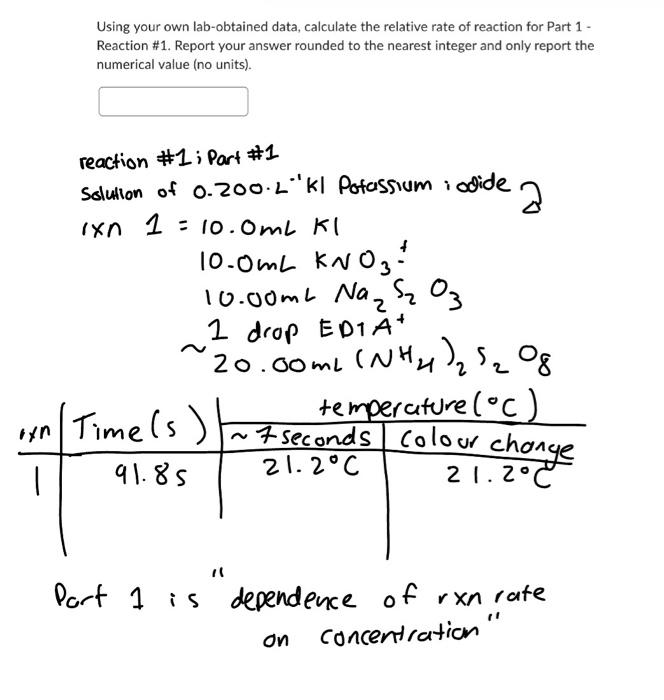 Using your own lab-obtained data, calculate the relative rate of reaction for Part 1 -
Reaction #1. Report your answer rounded to the nearest integer and only report the
numerical value (no units).
reaction #1; Part #1
Solution of 0.200·L⁻¹ KI Potassium iodide
rxn 1 = 10.0mL KI
10.0mL KNO₃⁺
10.00mL Na₂S₂O₃
~1 drop EDTA⁺
20.00mL (NH₄)₂S₂O₈
rxn Time(s) temperature(°C)
~7 seconds colour change
1 91.8s 21.2°C 21.2°C
Part 1 is "dependence of rxn rate
on concentration"